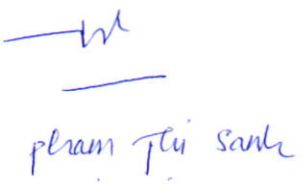 phạm Thị Sanh